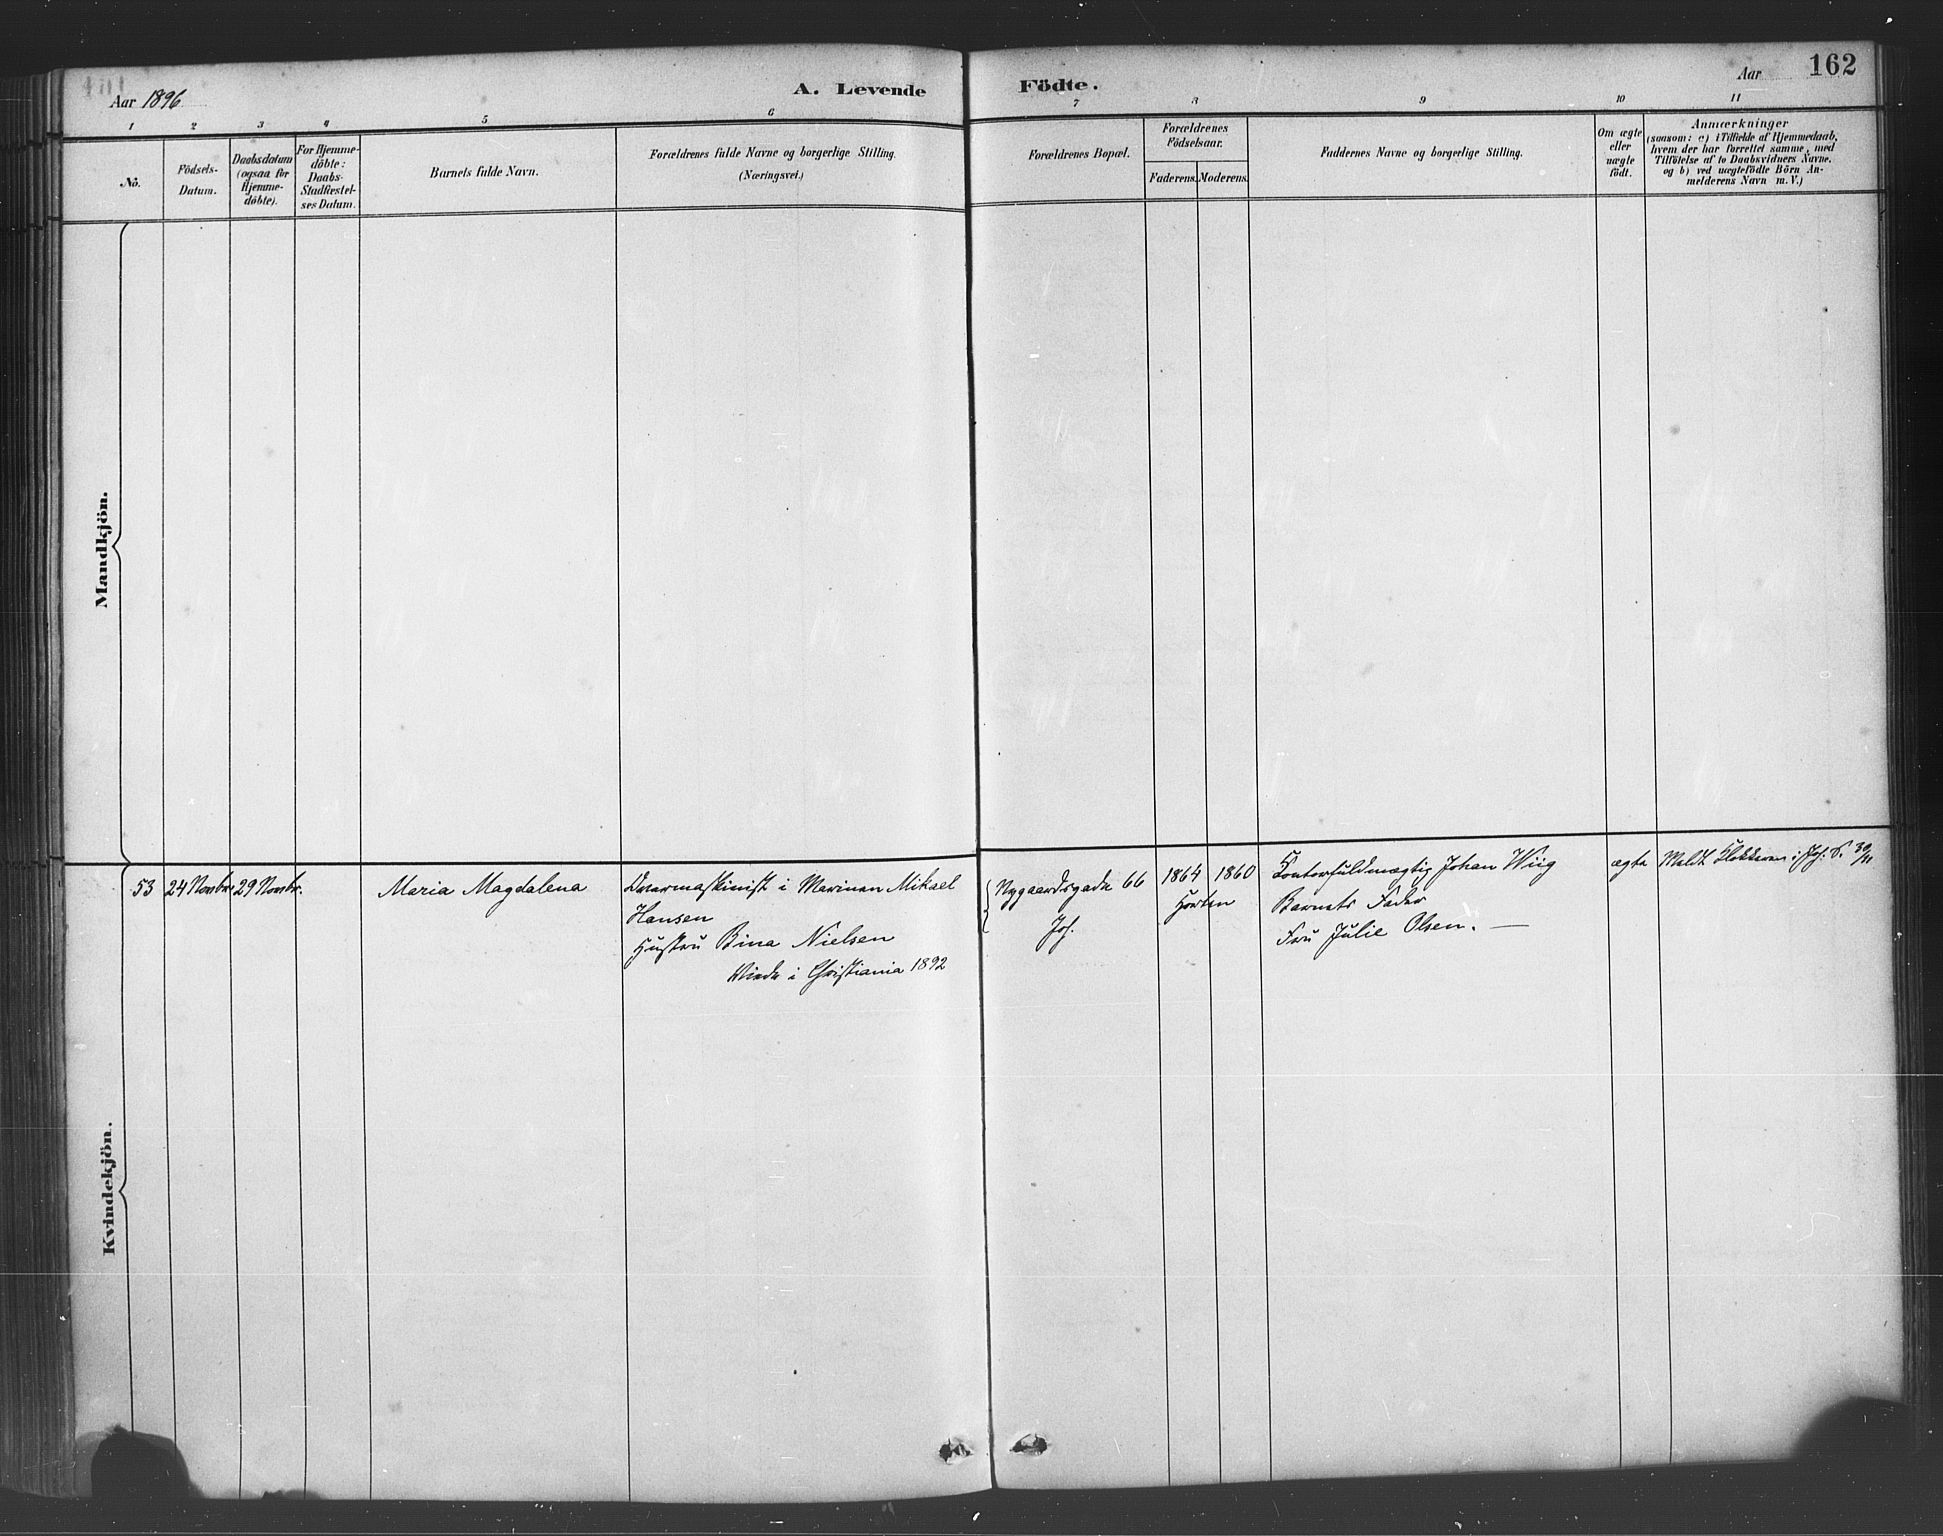 Aar 1896
A. Levende
Födte.
Aar
162
1 2 3 4 5 6 7 8 9 10 11
No.
Födsels-
Datum.
Daabsdatum
(ogsaa for
Hjemme-
döbte).
For Hjemme-
döbte:
Daabs-
Stadfæstel-
ses Datum.
Barnets fulde Navn.
Forældrenes fulde Navne og borgerlige Stilling.
(Næringsvei.)
Forældrenes Bopæl.
Forældrenes
Födselsaar.
Faderens. Moderens.
Faddernes Navne og borgerlige Stilling.
Om ægte
eller
uægte
födt.
Anmærkninger
(saasom: a) i Tilfælde af Hjemmedaab,
hvem der har forrettet samme, med
Tilföielse af to Daabsvidners Navne.
og b) ved uægtefödte Börn An-
melderens Navn m. V.)
Mandkjön.
Kvindekjön.
53
24 Novbr.
29 Novbr.
Maria Magdalena
Mikael
Hansen
Hustru Bina Nielsen
Viede i Christiania 1892
Nygaardsgade 66
Joh.
1864 1860
Horten
Contorfuldmægtig Johan Wiig
Barnets Fader
Fru Julie Olsen. —
ægte
Meldt Klokkeren i Joh. S. 30/11